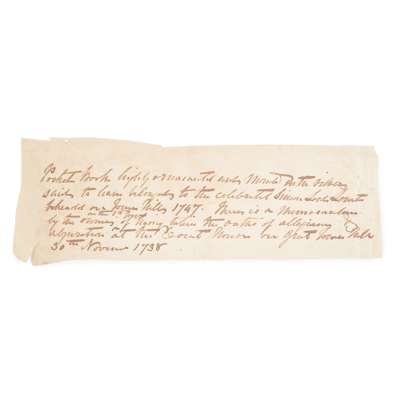 Pocket Book highly ornamented and Mounted with silver
said to have belonged to the celebrated Simon Lord Lovat
beheadd on Tower Hill 1747. There is a Memorandum
by the owner of having taken the oaths of allegiance
abjuration at the Court House on Great Tower Hill
30th Novemr 1738